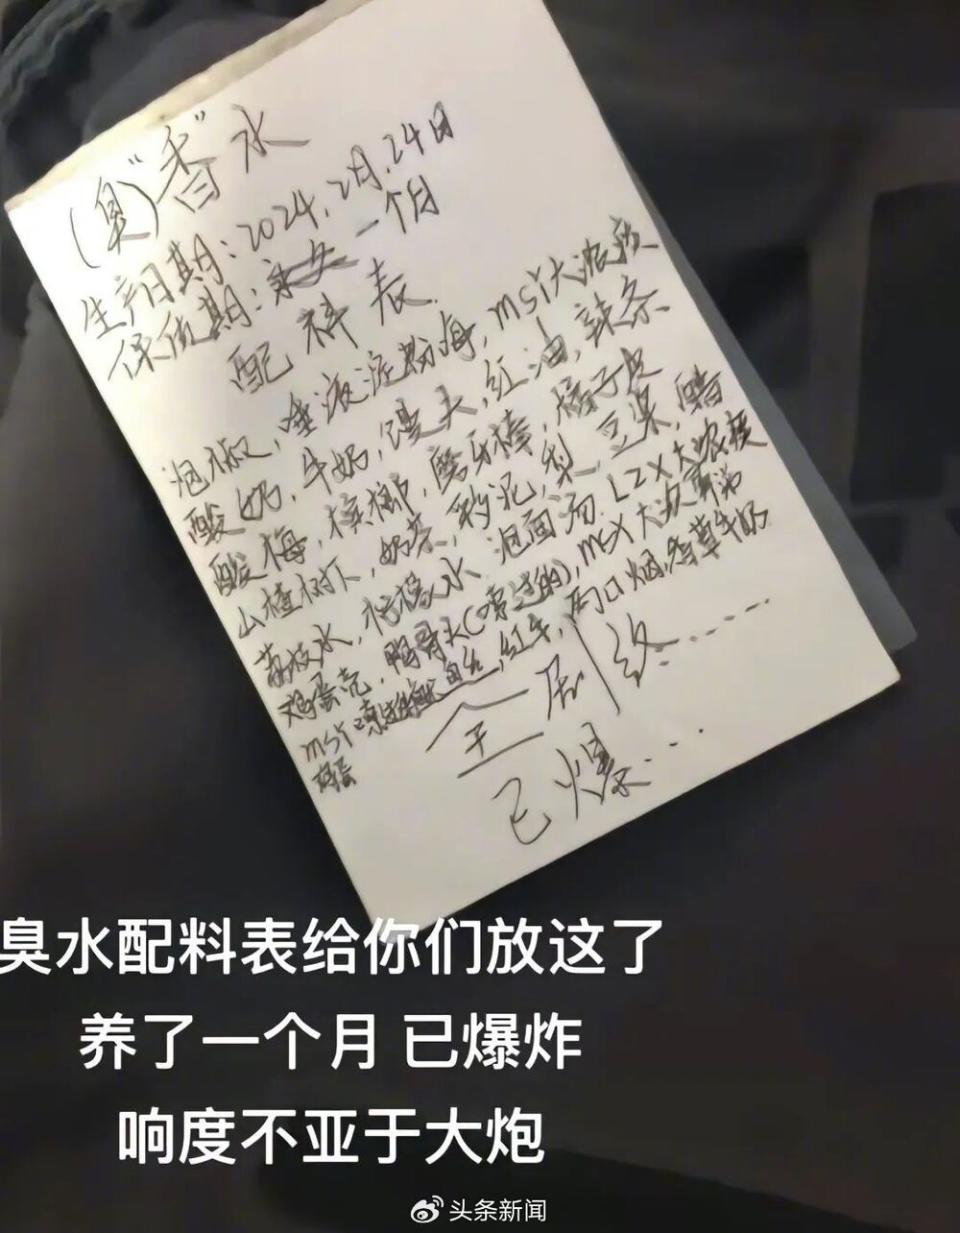 (臭)"香"水
生产日期:2024,2月.24日
保质期:永久 一个月
配料表
泡椒,唾液淀粉酶,msy大浓痰
酸奶,牛奶,馒头,红油,辣条
酸梅,槟榔,磨牙棒,橘子皮
山楂树下,奶茶,粉泥,梨,豆浆,醋
荔枝水,柠檬水,泡面汤.LZX大浓痰
鸡蛋壳,鸭骨头(嗦过的),msy大次鼻涕
msy 红牛,周口烟,香草牛奶
鸡蛋
全剧终……
已爆……
臭水配料表给你们放这了
养了一个月 已爆炸
响度不亚于大炮
头条新闻